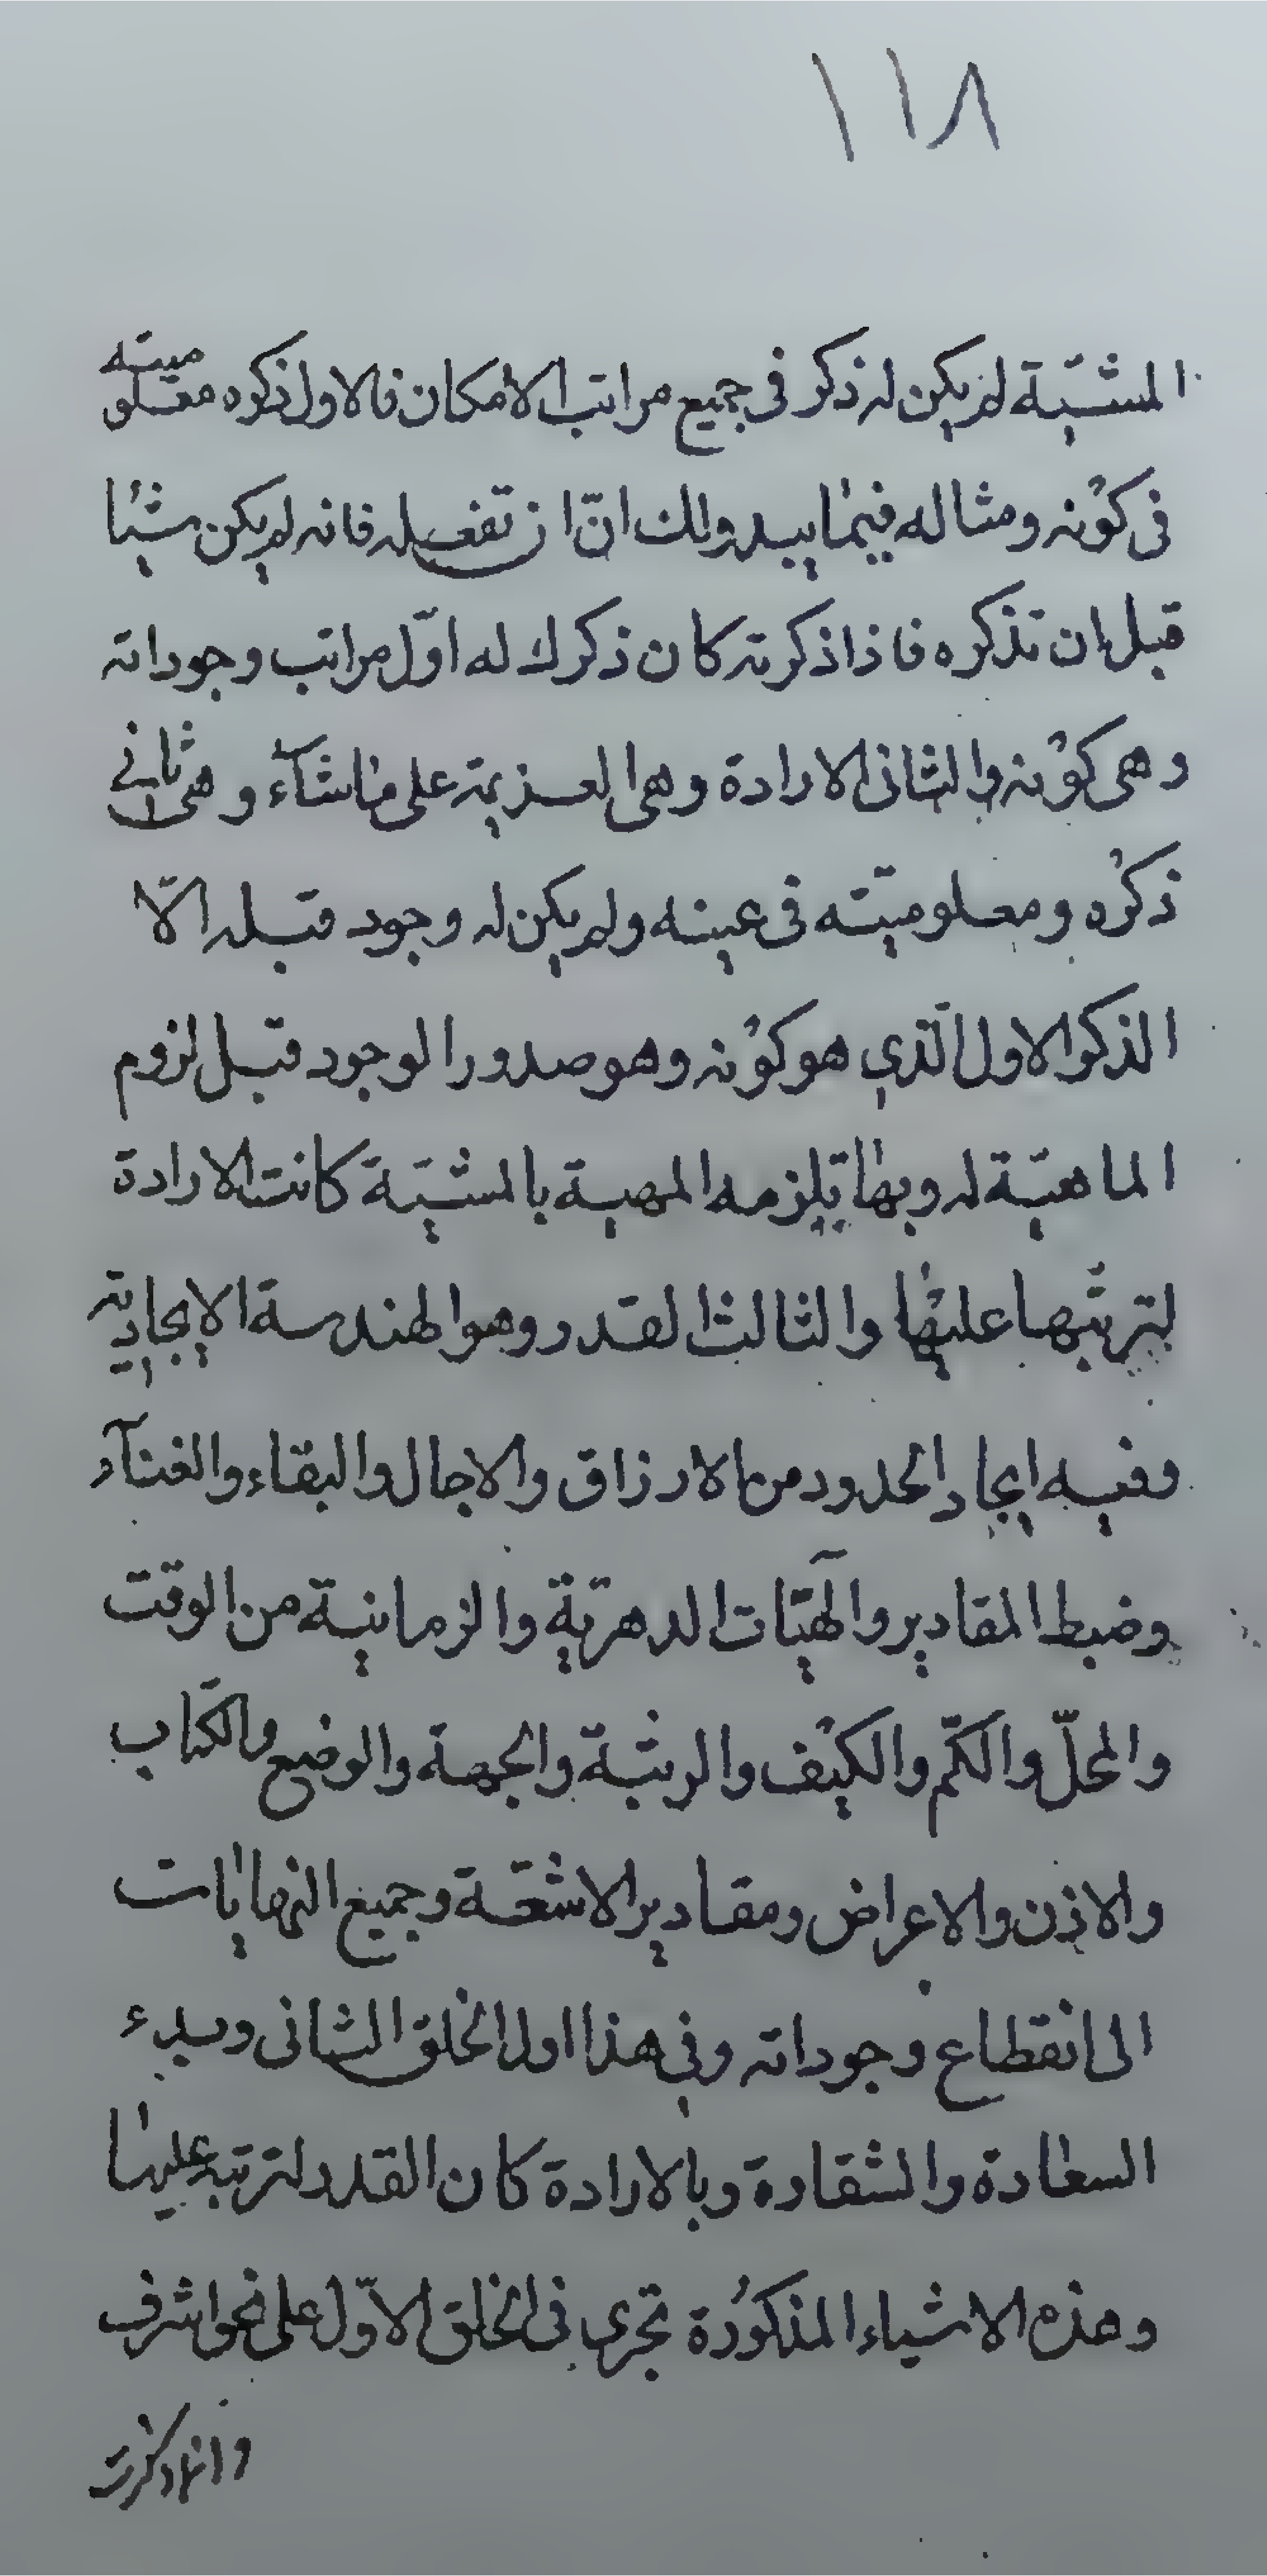 ١١٨
المشيّة لم يكن له ذكر فى جميع مراتب الامكان فالاول ذكره معلوميته
فى كونه ومثاله فيما يبدو لك انّ ان تفعله فانه لم يكن شيئا
قبل ان تذكره فاذا ذكرته كان ذكرك له اوّل مراتب وجوداته
وهى كونه والثانى الارادة وهى العزيمة على ما شآء وهى ثانى
ذكره ومعلوميّته فى عينه ولم يكن له وجود قبله الّا
الذكر الاول الّذي هو كونه وهو صدور الوجود قبل لزوم
الماهيّة له وبها يلزمه المهية بالمشيّة كانت الارادة
لترتّبها عليها والثالث القدر وهو الهندسة الايجاديّة
وفيه ايجاد الحدود من الارزاق والاجال والبقاء والفنآء
وضبط المقادير والهيّات الدهريّة والزمانية من الوقت
والمحلّ والكمّ والكيف والرتبة والجهة والوضع والكتاب
والاذن والاعراض ومقادير الاشعّة وجميع النهايات
الى انقطاع وجوداته وفي هذا اول الخلق الثانى وبدء
السعادة والشقاوة وبالارادة كان القدر لترتبه عليها
وهذه الاشياء المذكورة تجري فى الخلق الاوّل على نحو اشرف
وانما ذكرت